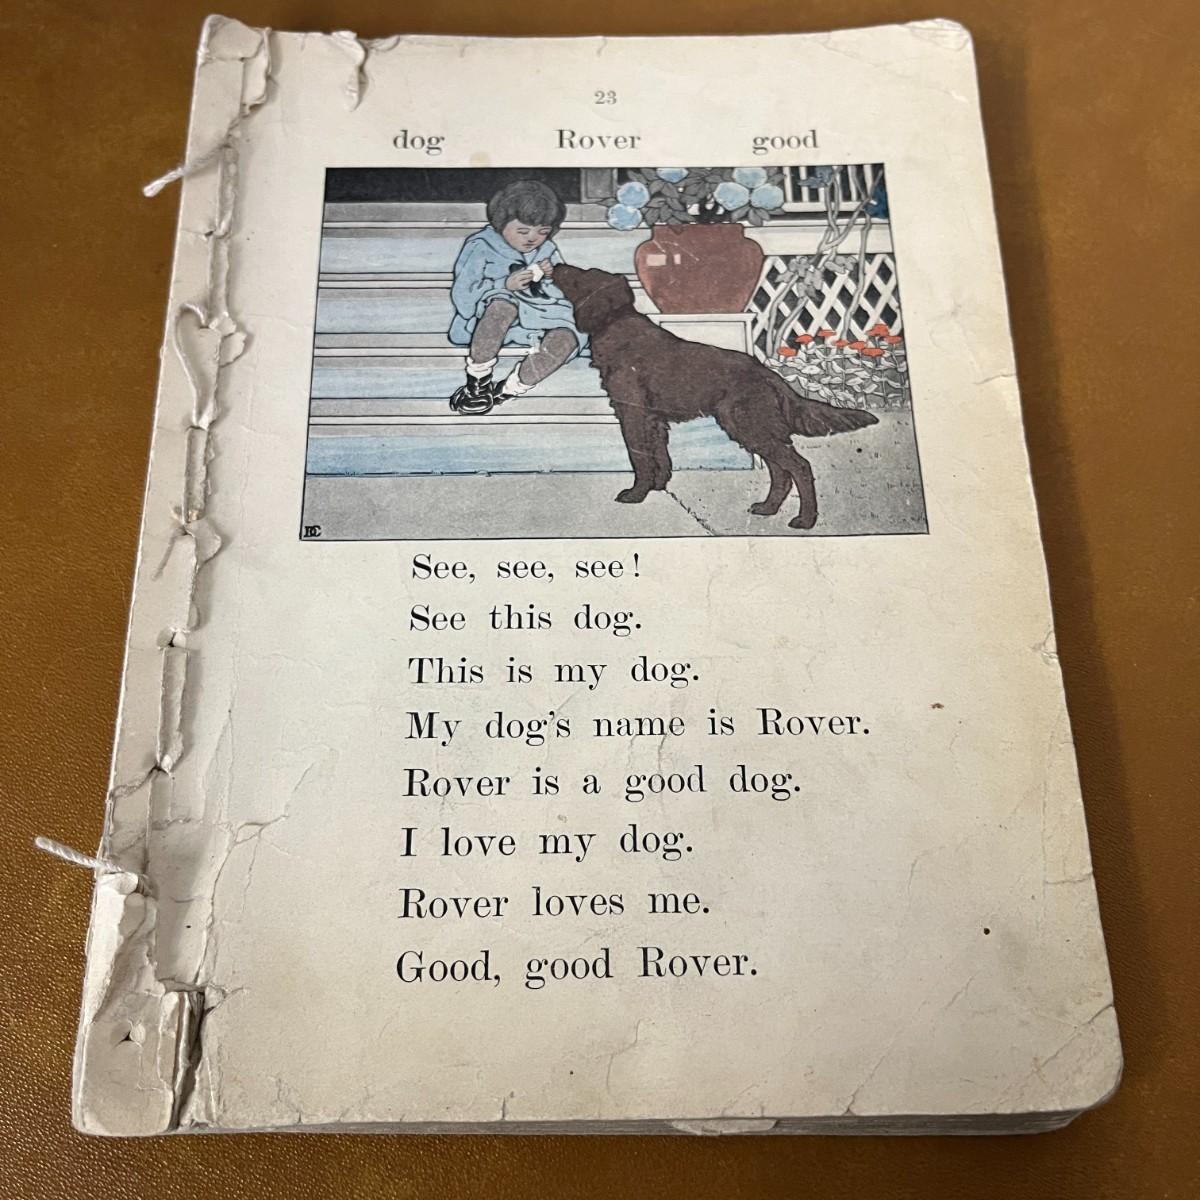 23
dog Rover good
See, see, see!
See this dog.
This is my dog.
My dog's name is Rover.
Rover is a good dog.
I love my dog.
Rover loves me.
Good, good Rover.